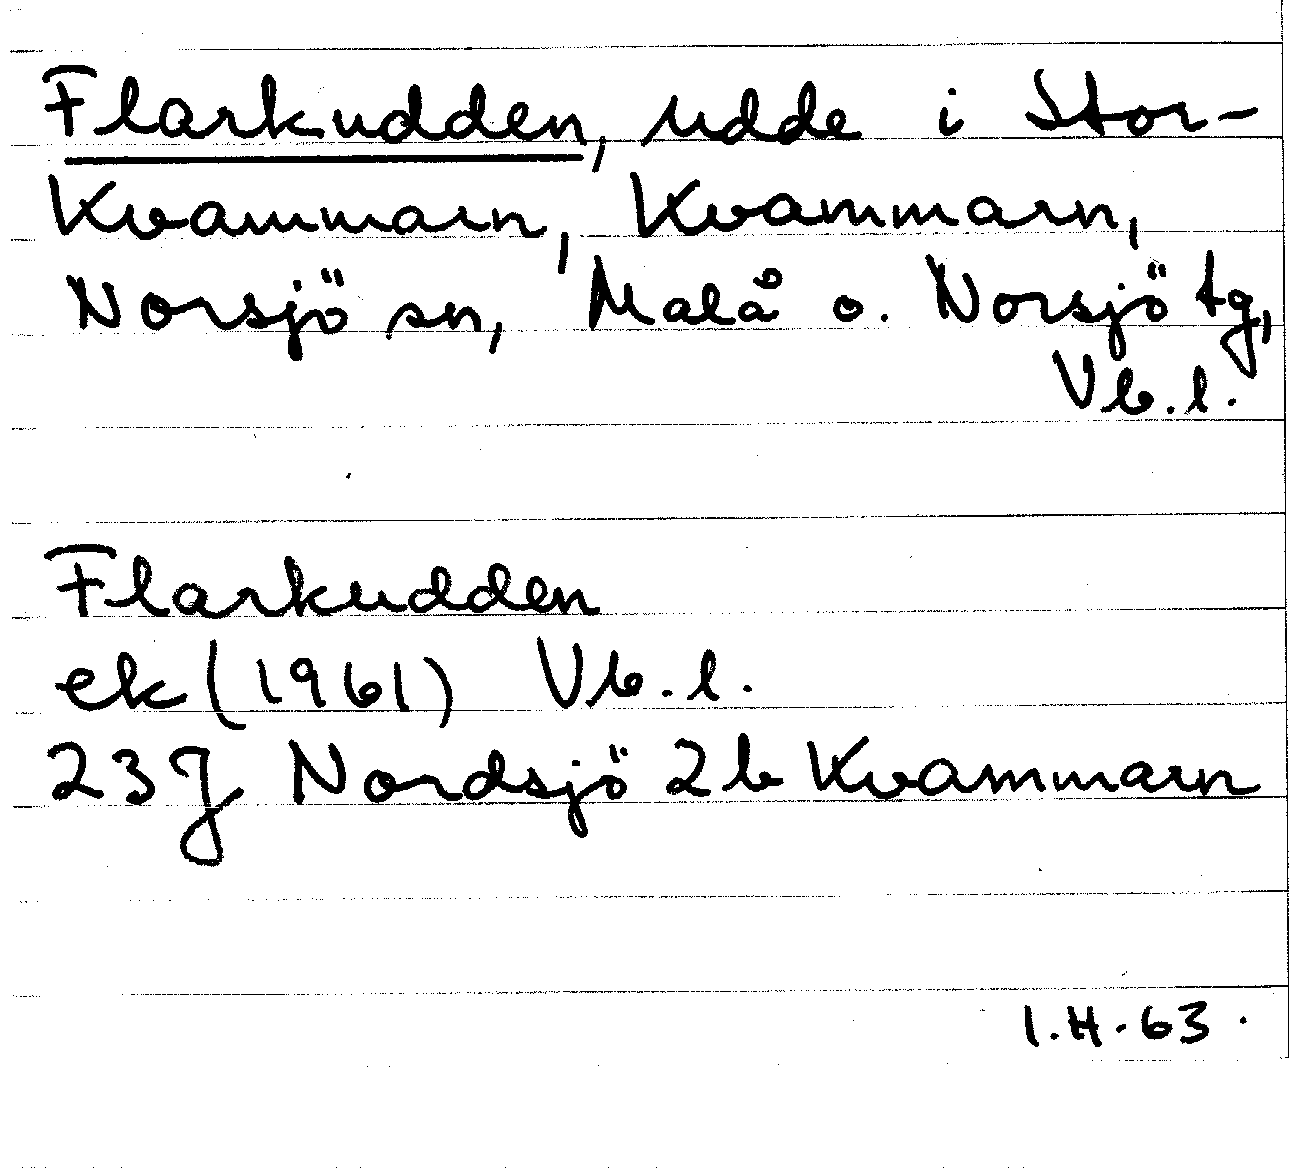 Flarkudden, udde i Stor-
Kvammarn, Kvammarn,
Norsjö sn, Malå o. Norsjö tg,
Vb.l.
Flarkudden
ek (1961) Vb.l.
23J Nordsjö 2b Kvammarn
I.H.63.